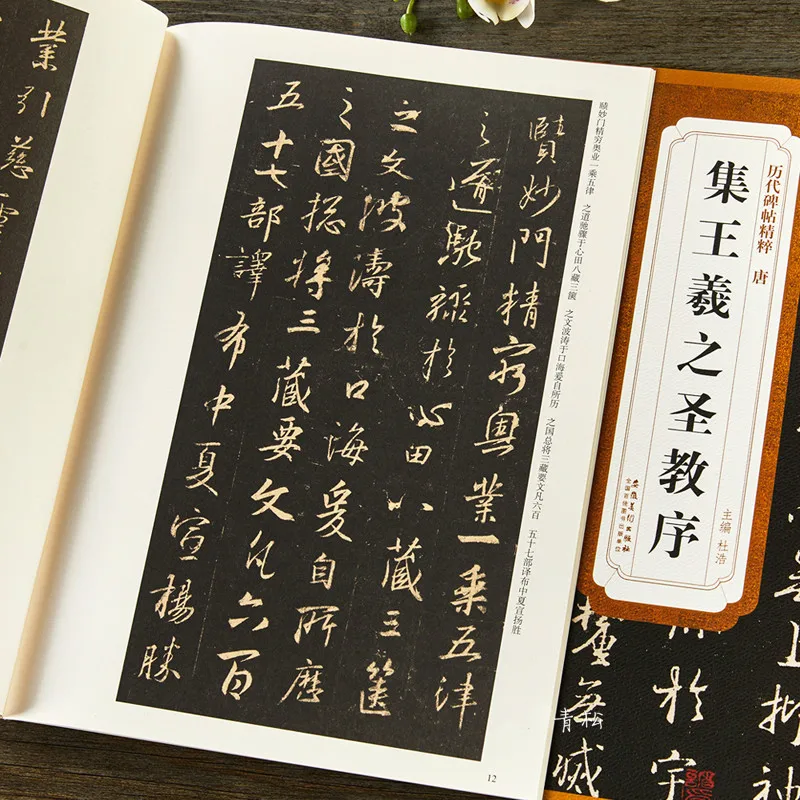 历代碑帖精粹 唐
集王羲之圣教序
主编 杜浩
安徽美术出版社
全国百佳图书出版单位
赜妙门精穷奥业一乘五津 之道驰骤于心田八藏三箧 之文波涛于口海爰自所历 之国总将三藏要文凡六百 五十七部译布中夏宣扬胜
賾妙門精窮奧業一乘五津
之道馳驟於心田八藏三篋
之文波濤於口海爰自所歷
之國總將三藏要文凡六百
五十七部譯布中夏宣揚勝
12
業引慈雲
青松